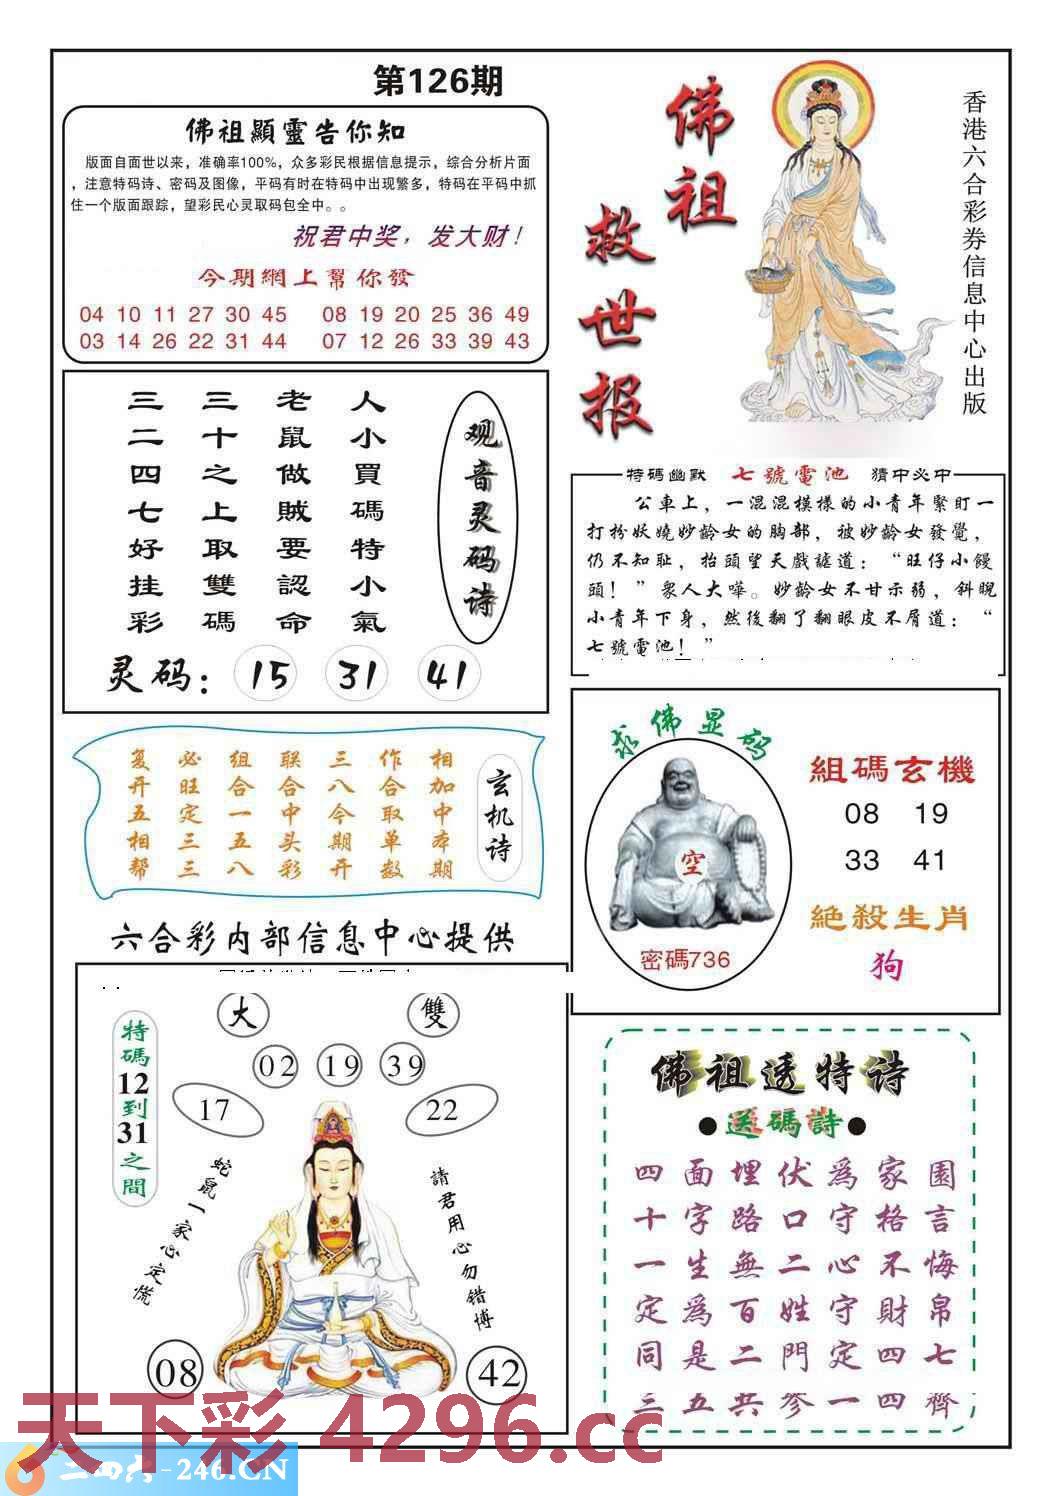 第126期
佛祖顯靈告你知
版面自面世以来，准确率100%，众多彩民根据信息提示，综合分析片面
，注意特码诗、密码及图像，平码有时在特码中出现繁多，特码在平码中抓
住一个版面跟踪，望彩民心灵取码包全中。。
祝君中奖，发大财！
今期網上幫你發
04 10 11 27 30 45 08 19 20 25 36 49
03 14 26 22 31 44 07 12 26 33 39 43
佛祖
救世报
香港六合彩券信息中心出版
观音灵码诗
人小買碼特小氣
老鼠做賊要認命
三十之上取雙碼
三二四七好挂彩
灵码：15 31 41
特码幽默 七號電池 猜中必中
公車上，一混混模樣的小青年緊盯一
打扮妖嬈妙齡女的胸部，被妙齡女發覺，
仍不知耻，抬頭望天戲謔道：“旺仔小饅
頭！”衆人大嘩。妙齡女不甘示弱，斜睨
小青年下身，然後翻了翻眼皮不屑道：“
七號電池！”
玄机诗
相加中本期
作合取单数
三八今期开
联合中头彩
组合一五八
必旺定三三
复开五相帮
求佛显码
空
密碼736
組碼玄機
08 19
33 41
絶殺生肖
狗
六合彩内部信息中心提供
大 雙
02 19 39
17 22
特碼12到31之間
蛇鼠一家心定慌
請君用心勿错博
08 42
佛祖透特诗
●送碼詩●
四面埋伏爲家園
十字路口守格言
一生無二心不悔
定爲百姓守財帛
同是二門定四七
三五共参一四齊
天下彩 4296.cc
二四六-246.CN